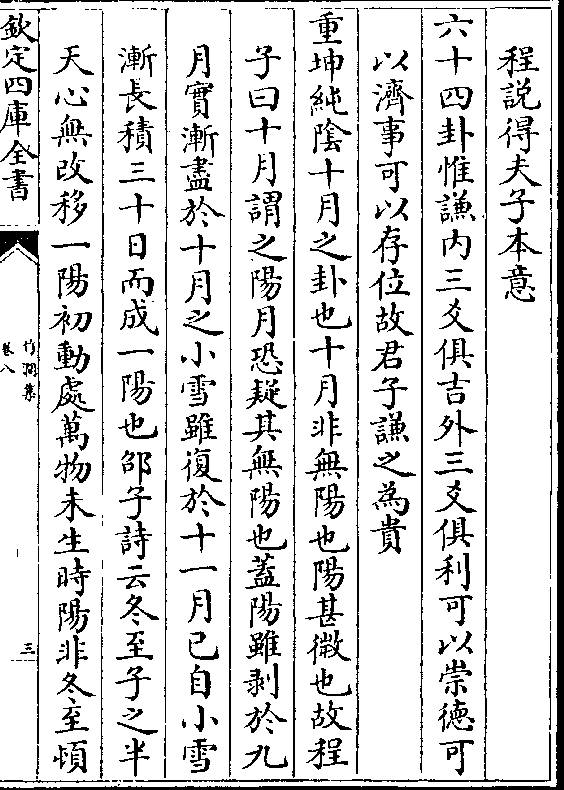 程說得夫子本意
六十四卦惟謙内三爻俱吉外三爻俱利可以崇德可
以濟事可以存位故君子謙之為貴
重坤純隂十月之卦也十月非無陽也陽甚微也故程
子曰十月謂之陽月恐疑其無陽也蓋陽雖剥於九
月實漸盡於十月之小雪雖復於十一月已自小雪
漸長積三十日而成一陽也邵子詩云冬至子之半
天心無改移一陽初動處萬物未生時陽非冬至頓
欽定四庫全書
竹澗集
卷八
三